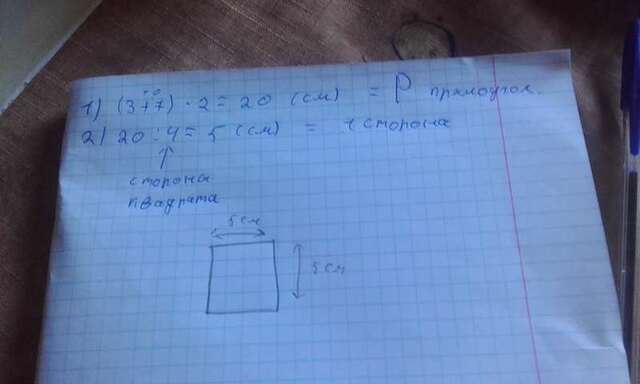 1) (3+7) · 2 = 20 (см) = P прямоугол.
10
2) 20 : 4 = 5 (см) = 1 сторона
↑
сторона
квадрата
5 см
5 см